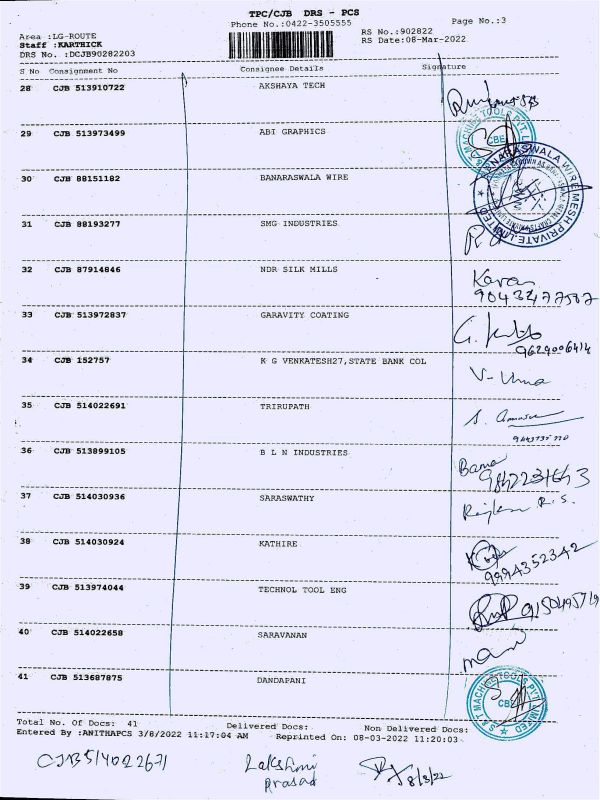 TPC/CJB DRS - PCS
Phone No.:0422-3505555
Page No.:3
Area :LG-ROUTE
RS No.:902822
Staff :KARTHICK
RS Date:08-Mar-2022
DRS No. :DCJB90282203
S No Consignment No Consignee Details Signature
28 CJB 513910722 AKSHAYA TECH
29 CJB 513973499 ABI GRAPHICS
30 CJB 88151182 BANARASWALA WIRE
BANARASWALA WIRE MESH PRIVATE LIMITED
31 CJB 88193277 SMG INDUSTRIES
32 CJB 87914846 NDR SILK MILLS
Karan
9043277587
33 CJB 513972837 GARAVITY COATING
9629006414
34 CJB 152757 K G VENKATESH27,STATE BANK COL
V-Uma
35 CJB 514022691 TRIRUPATH
36 CJB 513899105 B L N INDUSTRIES
Bama
37 CJB 514030936 SARASWATHY
38 CJB 514030924 KATHIRE
9994352342
39 CJB 513974044 TECHNOL TOOL ENG
40 CJB 514022658 SARAVANAN
Mani
41 CJB 513687875 DANDAPANI
S & T MACHINE TOOLS PVT. LIMITED
CBE
Total No. Of Docs: 41 Delivered Docs: Non Delivered Docs:
Entered By :ANITHAPCS 3/8/2022 11:17:04 AM Reprinted On: 08-03-2022 11:20:03
CJB514022671 Lakshmi 8/3/22
Prasad